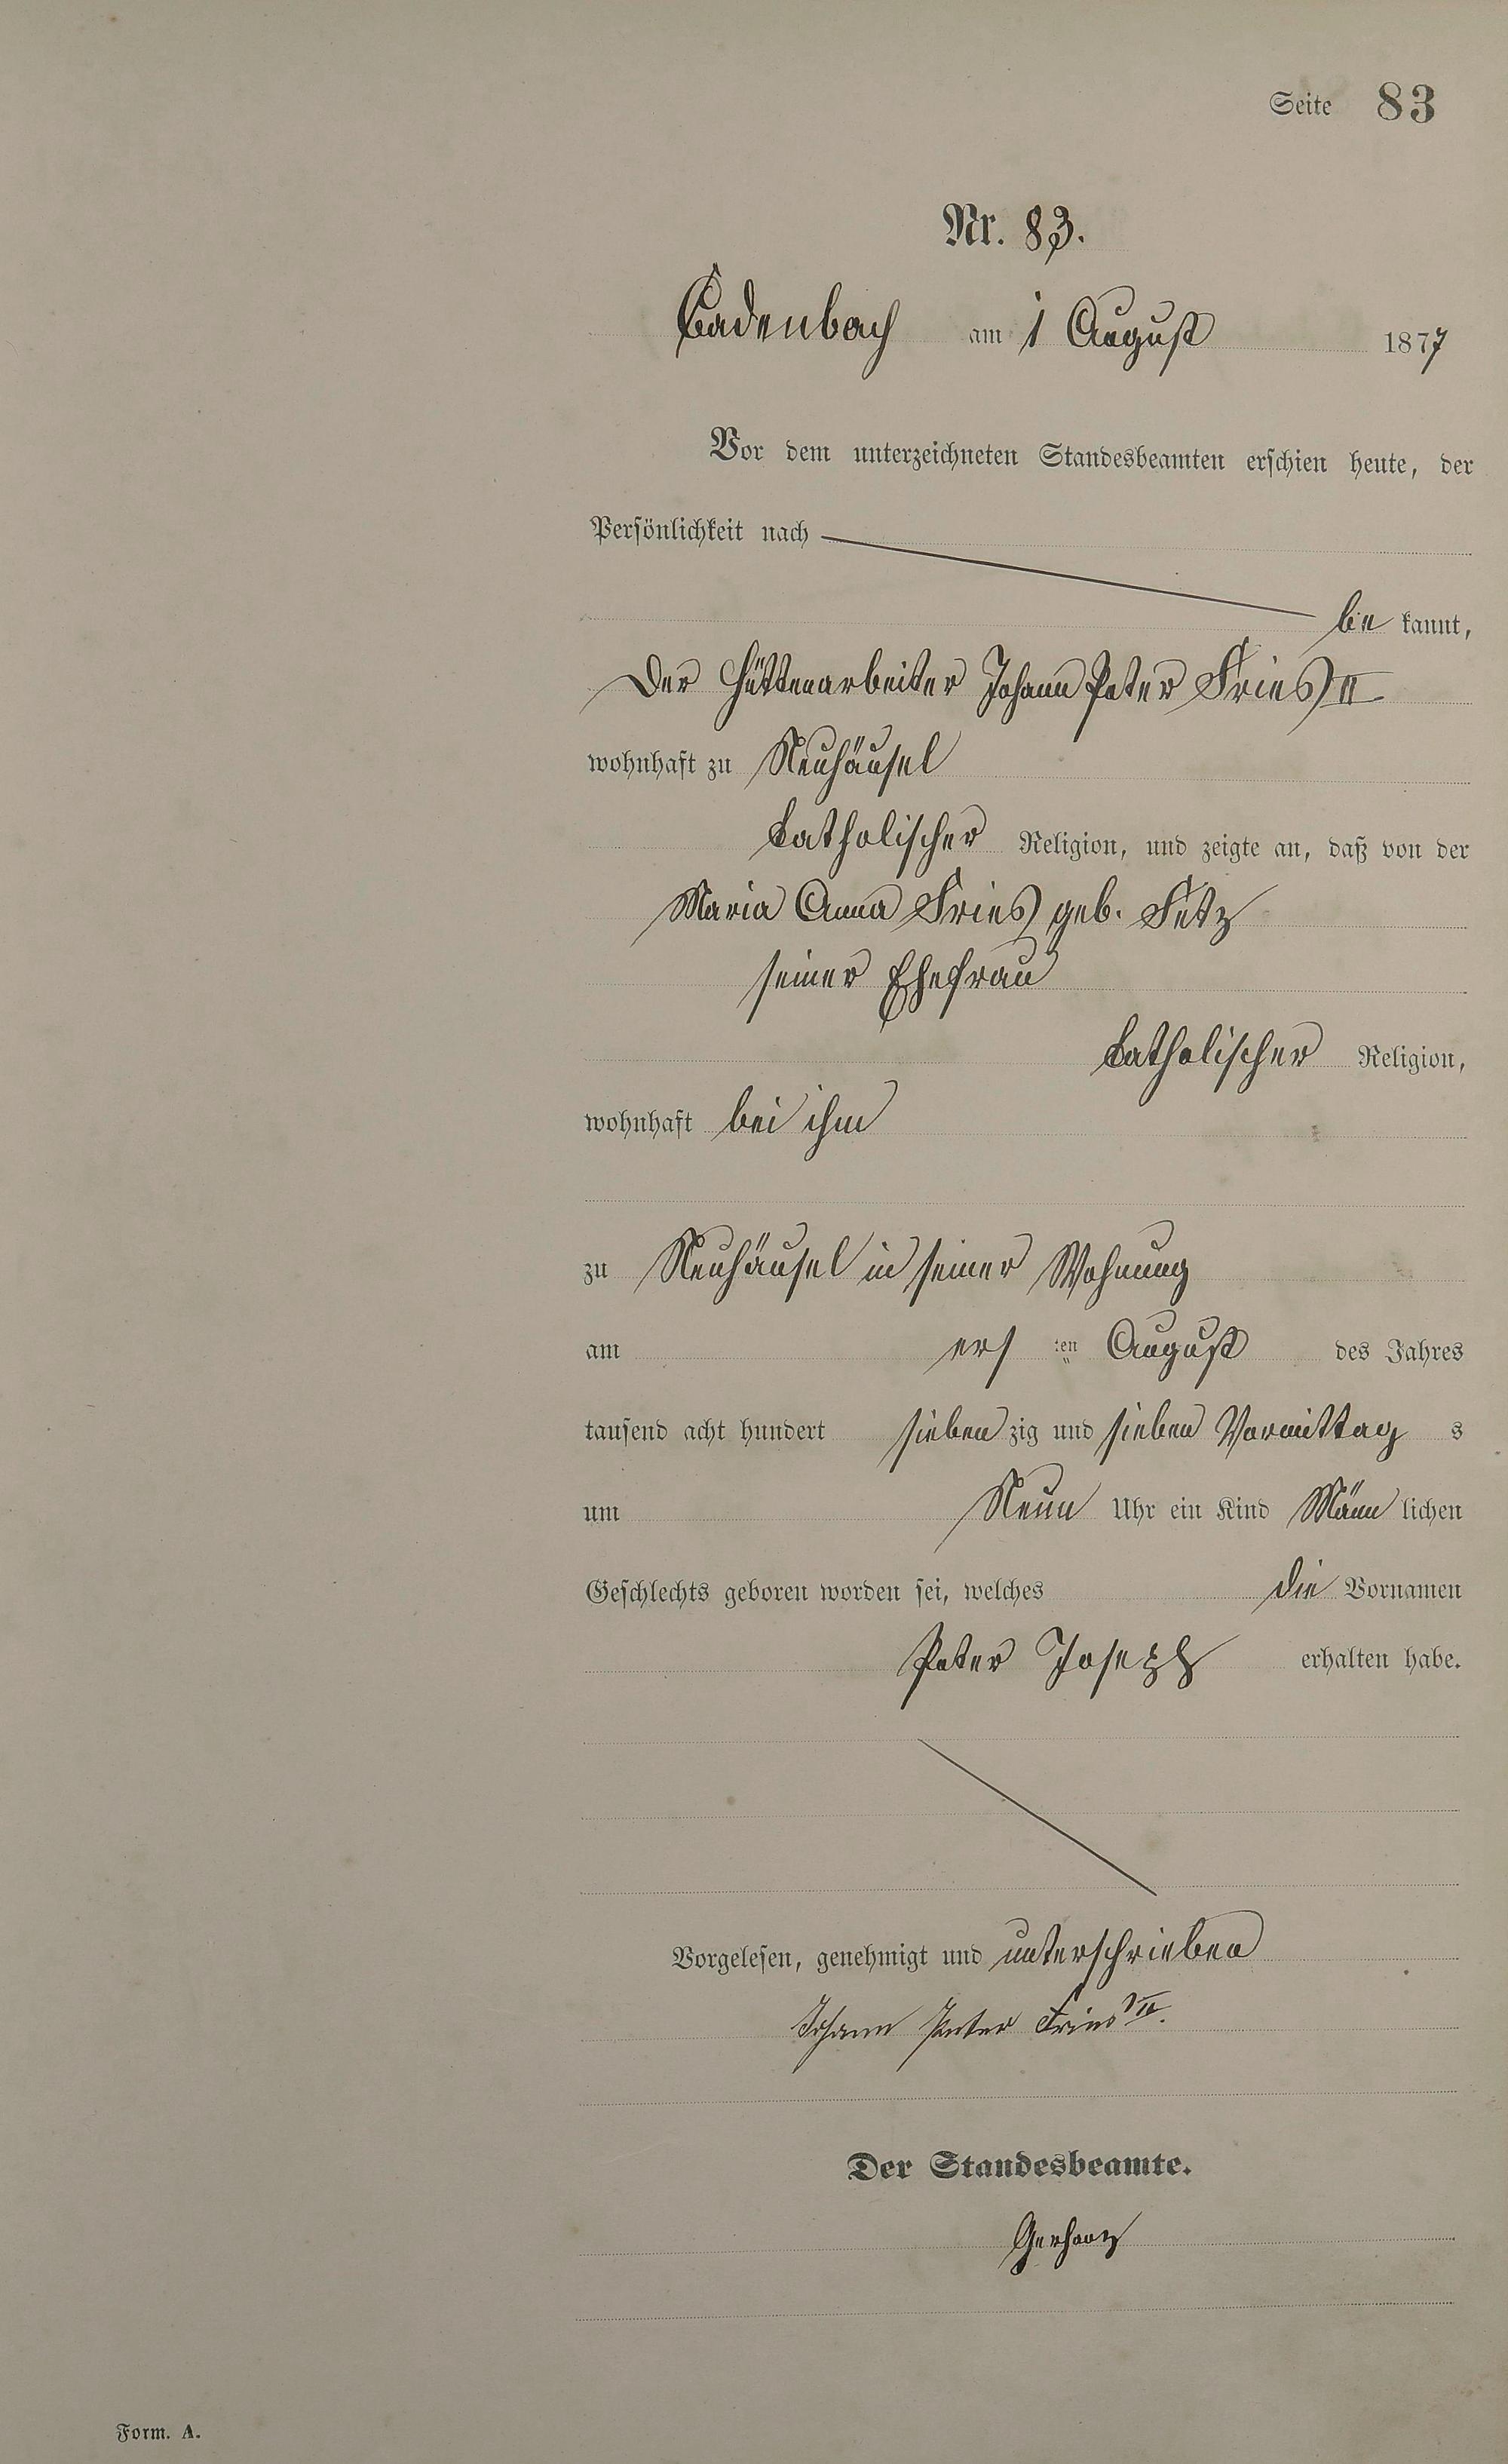 Seite 83
Nr. 83.
Cadenbach am 1 August 1877
Vor dem unterzeichneten Standesbeamten erschien heute, der
Persönlichkeit nach
be kannt,
Der Hüttenarbeiter Johann Peter Fries II
wohnhaft zu Neuhäusel
katholischer Religion, und zeigte an, daß von der
Maria Anna Fries geb. Fetz
seiner Ehefrau
katholischer Religion,
wohnhaft bei ihm
zu Neuhäusel in seiner Wohnung
am ers ten August des Jahres
tausend acht hundert sieben zig und sieben Vormittag s
um Neun Uhr ein Kind Männ lichen
Geschlechts geboren worden sei, welches die Vornamen
Peter Joseph erhalten habe.
Vorgelesen, genehmigt und unterschrieben
Johann Peter Fries
Der Standesbeamte.
Gerharz
Form. A.